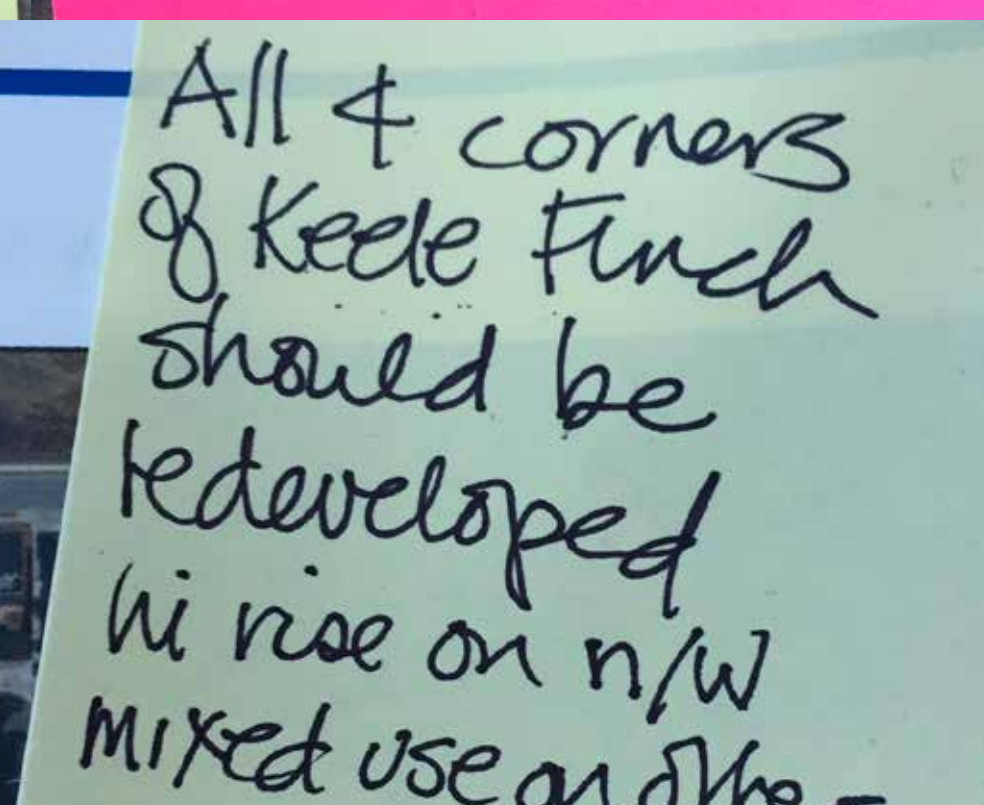 All 4 corners
of Keele Finch
should be
redeveloped
hi rise on n/w
mixed use on othe